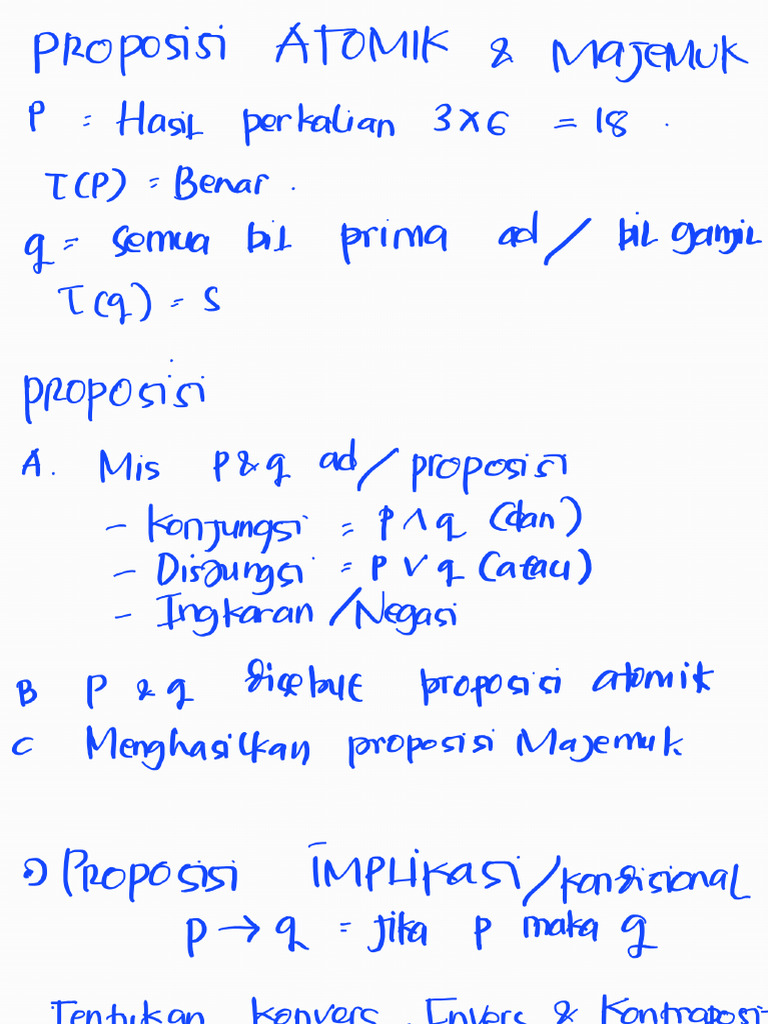 PROPOSISI ATOMIK & MAJEMUK
P = Hasil perkalian 3×6 = 18.
T(P) = Benar.
q = semua bil prima ad/ bil ganjil
T(q) = S
PROPOSISI
A. Mis P & q ad/ proposisi
- Konjungsi = P ∧ q (dan)
- Disjungsi = P ∨ q (atau)
- Ingkaran /Negasi
B P & q disebut proposisi atomik
C Menghasilkan proposisi Majemuk
PROPOSISI IMPLIKASI/kondisional
P → q = jika p maka q
Tentukan konvers, Invers & Kontraposisi